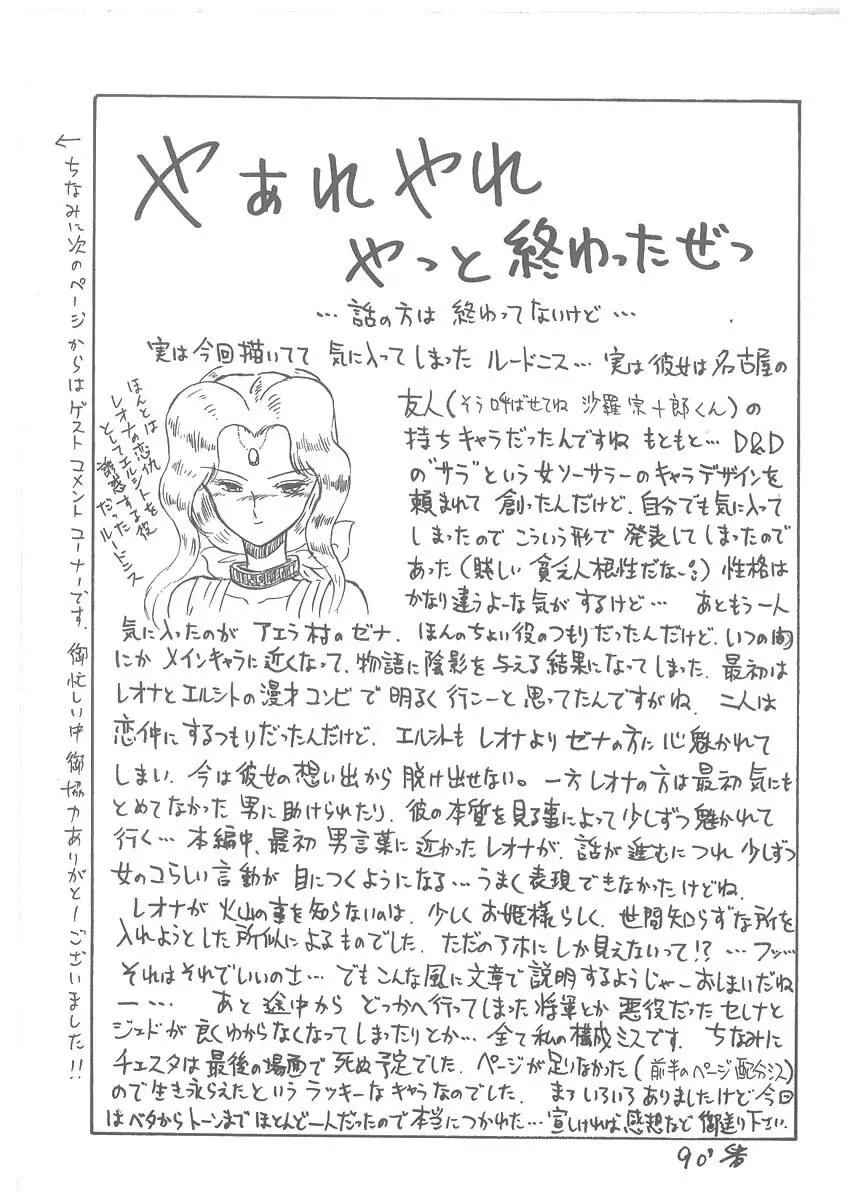 やぁれやれ
やっと終わったぜっ
…話の方は終わってないけど…
実は今回描いてて気に入ってしまったルードニス…実は彼女は名古屋の
友人(そう呼ばせてね沙羅宗十郎くん)の
持ちキャラだったんですねもともと…D&D
の"サラ"という女ソーサラーのキャラデザインを
頼まれて創ったんだけど、自分でも気に入って
しまったのでこういう形で発表してしまったので
あった(賎しい貧乏人根性だな〜)性格は
かなり違うよーな気がするけど…あともう一人
気に入ったのがアエラ村のゼナ、ほんのちょい役のつもりだったんだけど、いつの間
にかメインキャラに近くなって、物語に陰影を与える結果になってしまった。最初は
レオナとエルシトの漫才コンビで明るく行こーと思ってたんですがね、二人は
恋仲にするつもりだったんだけど、エルシトもレオナよりゼナの方に心魅かれて
しまい、今は彼女の想い出から脱け出せない。一方レオナの方は最初気にも
とめてなかった男に助けられたり、彼の本質を見る事によって少しずつ魅かれて
行く…本編中、最初男言葉に近かったレオナが、話が進むにつれ少しずつ
女のコらしい言動が目につくようになる…うまく表現できなかったけどね、
レオナが火山の事を知らないのは、少しくお姫様らしく、世間知らずな所を
入れようとした所似によるものでした、ただのアホにしか見えないって!?…フッ…
それはそれでいいのさ…でもこんな風に文章で説明するようじゃーおしまいだね
ー…あと途中からどっかへ行ってしまった将軍とか悪役だったセレナと
ジェドが良くわからなくなってしまったりとか…全て私の構成ミスです、ちなみに
チェスタは最後の場面で死ぬ予定でした、ページが足りなかった(前半のページ配分ミス)
ので生き永らえたというラッキーなキャラなのでした、まァいろいろありましたけど今回
はベタからトーンまでほとんど一人だったので本当につかれた…宜しければ感想など御送り下さい、
90'
ほんとは
レオナの恋仇
としてエルシトを
誘惑する役
だった
ルードニス
←ちなみに次のページからはゲストコメントコーナーです、御忙しい中御協力ありがとーございました!!